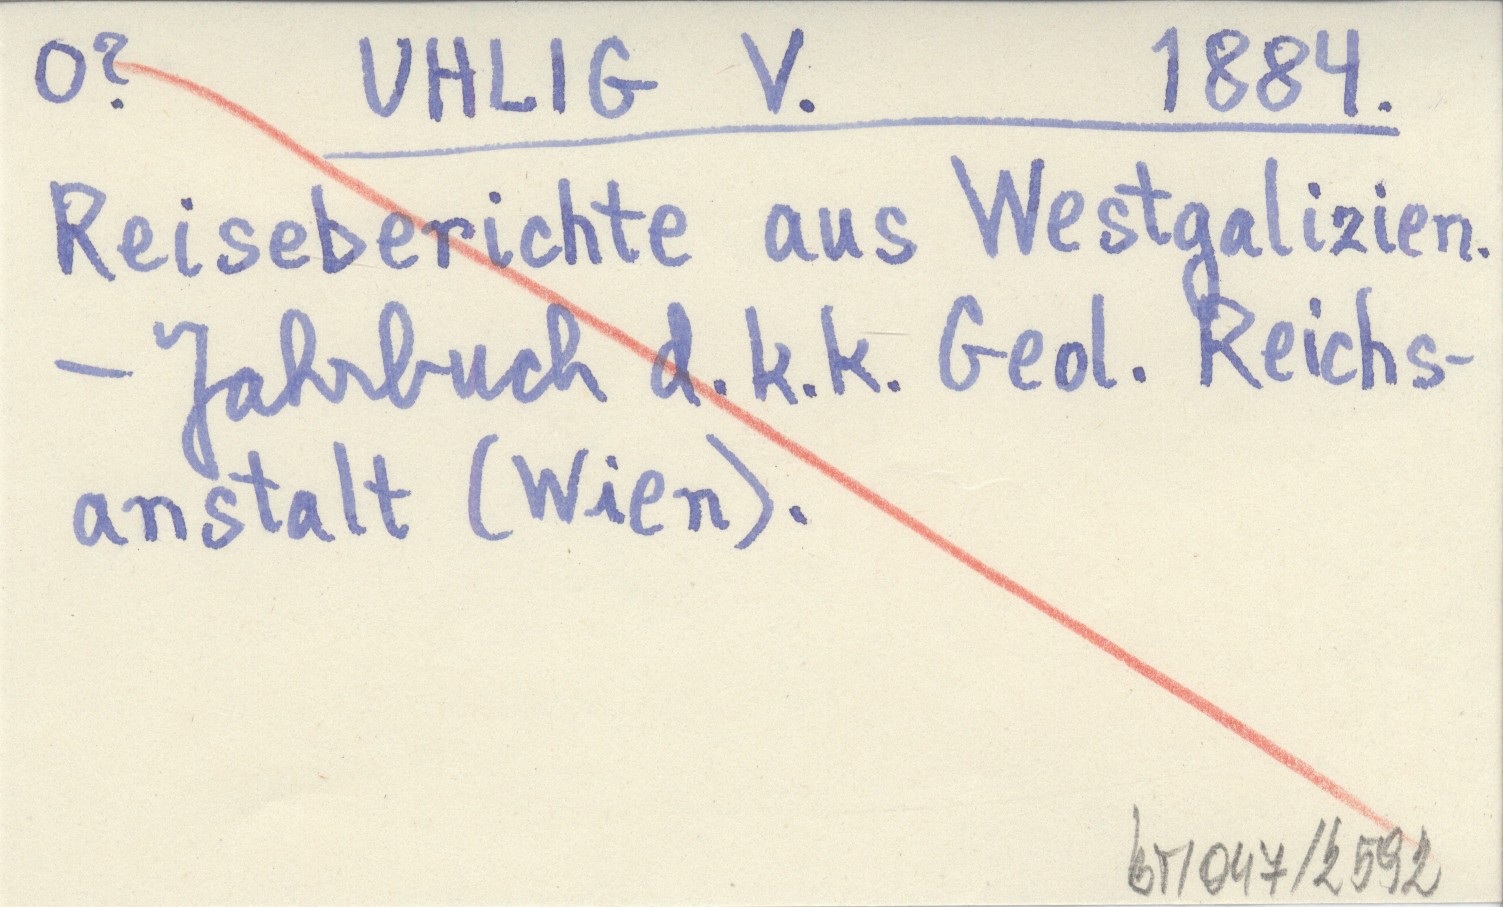 O? UHLIG V. 1884.
Reiseberichte aus Westgalizien.
– Jahrbuch d. k. k. Geol. Reichs-
anstalt (Wien).